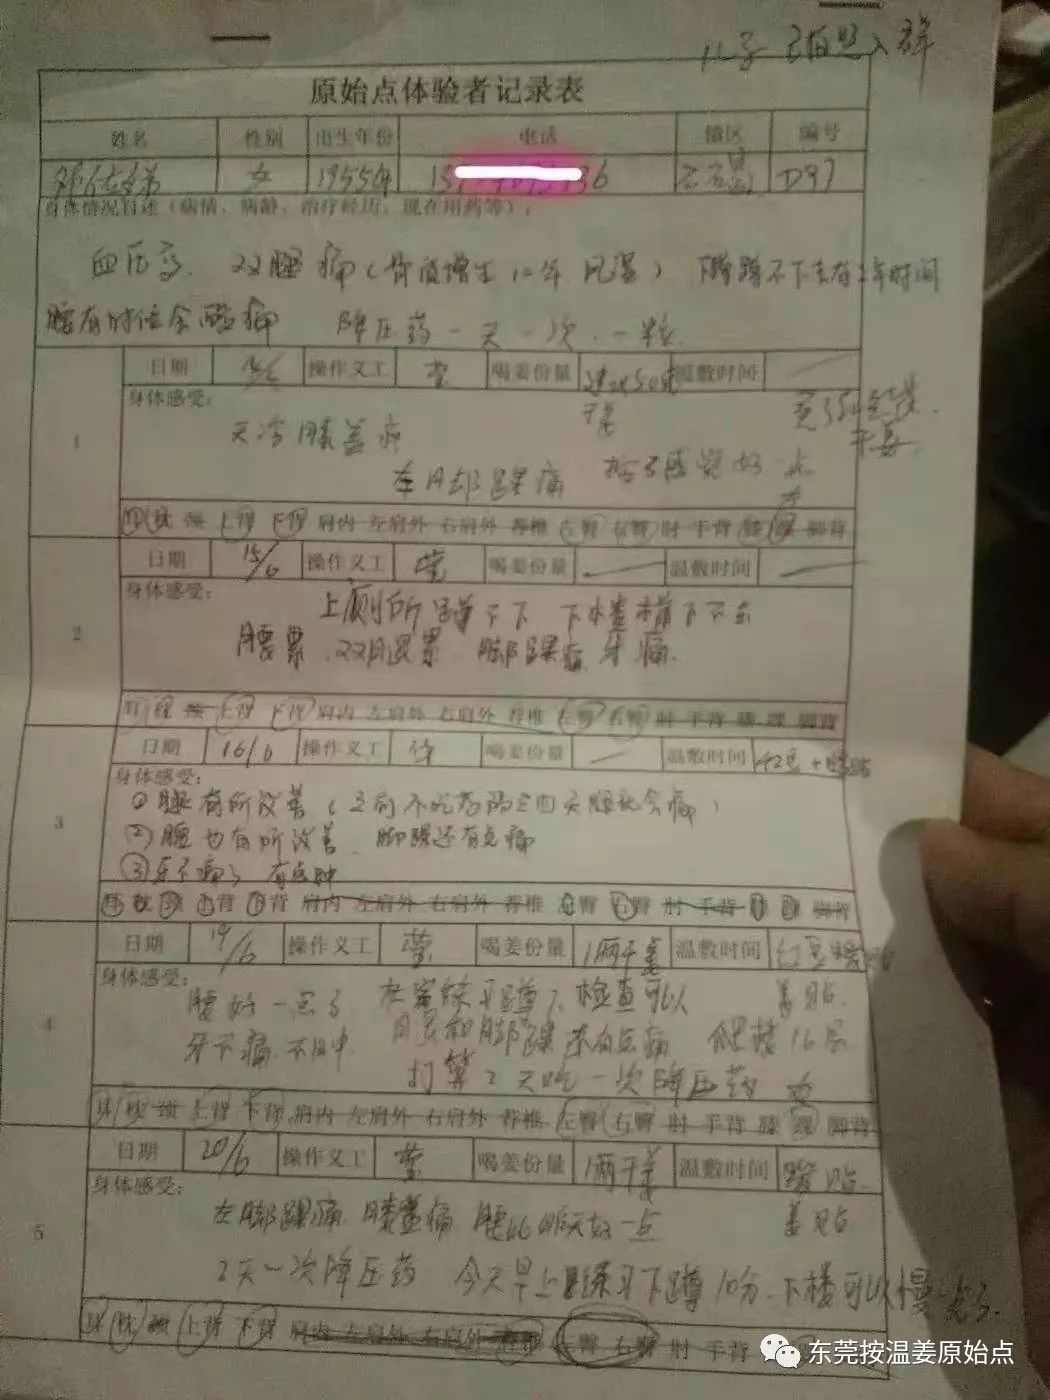 儿子 已拍照入群
原始点体验者记录表
姓名 性别 出生年份 电话 镇区 编号
女 1955年 D97
身体情况自述（病情、病龄、治疗经历、现在用药等）：
血压高、双腿痛（骨质增生10年 风湿）、下蹲蹲不下去有2年时间
腰有时位会酸痛 降压药一天一次、一粒
1
日期 操作义工 莹 喝姜份量 温敷时间
身体感受：
天冷膝盖疼
左脚踝痛
枕 颈 上背 下背 肩内 左肩外 右肩外 荐椎 左臀 右臀 肘 手背 膝 踝 脚背
2
日期 15/6 操作义工 莹 喝姜份量 温敷时间
身体感受：
上厕所蹲不下 下楼
腰累、双腿累、脚踝痛、牙痛
枕 颈 上背 下背 肩内 左肩外 右肩外 荐椎 左臀 右臀 肘 手背 膝 踝 脚背
3
日期 16/6 操作义工 喝姜份量 温敷时间
身体感受：
①腿有所改善（之前不吃药隔三四天腿就会痛）
②腰也有所改善、脚踝还有点痛
③牙不痛了 有点肿
耳 枕 颈 上背 下背 肩内 左肩外 右肩外 荐椎 左臀 右臀 肘 手背 膝 踝 脚背
4
日期 19/6 操作义工 莹 喝姜份量 1两干姜 温敷时间
身体感受：
腰好一点了 练习蹲下 可以 姜贴
牙不痛、不肿 脚踝还有点痛 爬楼16层
打算2天吃一次降压药
耳 枕 颈 上背 下背 肩内 左肩外 右肩外 荐椎 左臀 右臀 肘 手背 膝 踝 脚背
5
日期 20/6 操作义工 莹 喝姜份量 1两干姜 温敷时间
身体感受：
左脚踝痛 膝盖痛 腰比昨天好一点 姜贴
2天一次降压药 今天早上练习下蹲10分、下楼可以慢
耳 枕 颈 上背 下背 肩内 左肩外 右肩外 荐椎 左臀 右臀 肘 手背
东莞按温姜原始点